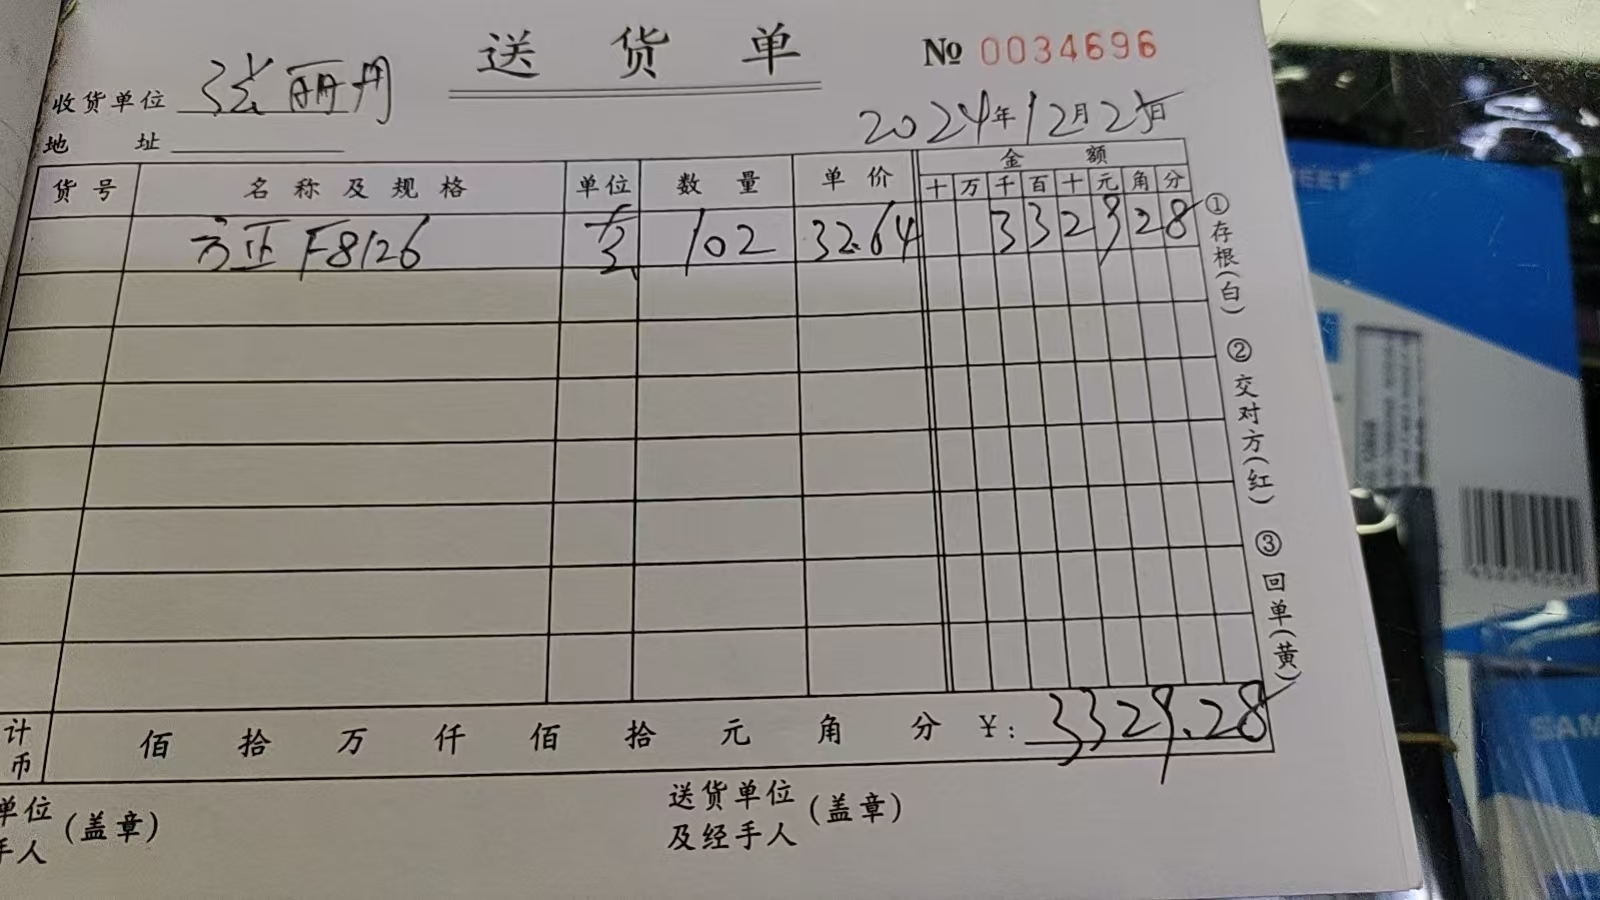 送货单 № 0034696
收货单位 张丽丹
2024年12月25日
地址
货号 名称及规格 单位 数量 单价 金额
十万千百十元角分
方正F8126 套 102 32.64 3329 28
①存根(白)
②交对方(红)
③回单(黄)
计
币 佰 拾 万 仟 佰 拾 元 角 分 ¥: 3329.28
单位 (盖章) 送货单位 (盖章)
手人 及经手人
SAM